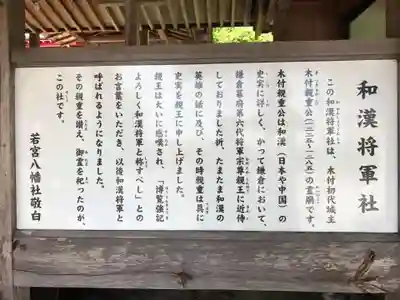 和漢将軍社
この和漢将軍社は、木付初代城主
木付親重公(一二三五~一二八五)の霊廟です。
木付親重公は和漢(日本や中国)の
史実に詳しく、かつて鎌倉において、
鎌倉幕府第六代将軍宗尊親王に近侍
しておりました折、たまたま和漢の
英雄の話に及び、その時親重は具に
史実を親王に申し上げました。
親王は大いに感嘆され、「博覧強記
よろしく和漢将軍と称すべし」との
お言葉をいただき、以後和漢将軍と
呼ばれるようになりました。
その親重を讃え、御霊を祀ったのが、
この社です。
若宮八幡社敬白